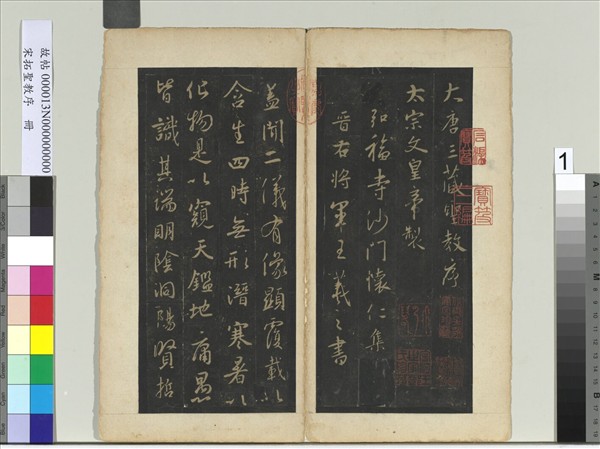 大唐三藏聖教序
太宗文皇帝製
弘福寺沙門懷仁集
晉右將軍王羲之書
蓋聞二儀有像顯覆載以
含生四時無形潛寒暑以
化物是以窺天鑑地庸愚
皆識其端明陰洞陽賢哲
故帖 000013N000000000
宋拓聖教序 冊
1
Black
3/Color
White
Magenta
Red
Yellow
Green
Cyan
Blue
A
M
B